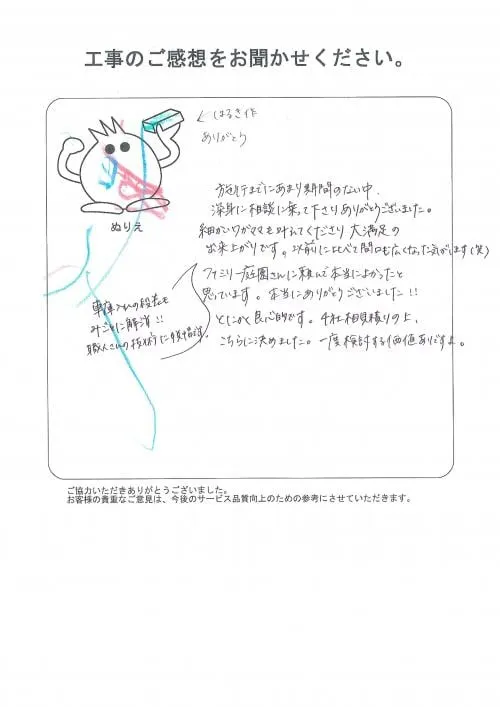 工事のご感想をお聞かせください。
← はるき作
ありがとう
ぬりえ
施行までにあまり時間のない中、
深身に相談に乗って下さりありがとうございました。
細かいワガママも叶えてくださり大満足の
出来上がりです。以前に比べて間口も広くなった気がします(笑)
ファミリー庭園さんに頼んで本当によかったと
思っています。本当にありがとうございました!!
とにかく良心的です。4社相見積りの上、
こちらに決めました。一度検討する価値ありですよ。
車庫入れの段差も
みごとに解消!!
職人さんの技術に
ご協力いただきありがとうございました。
お客様の貴重なご意見は、今後のサービス品質向上のための参考にさせていただきます。